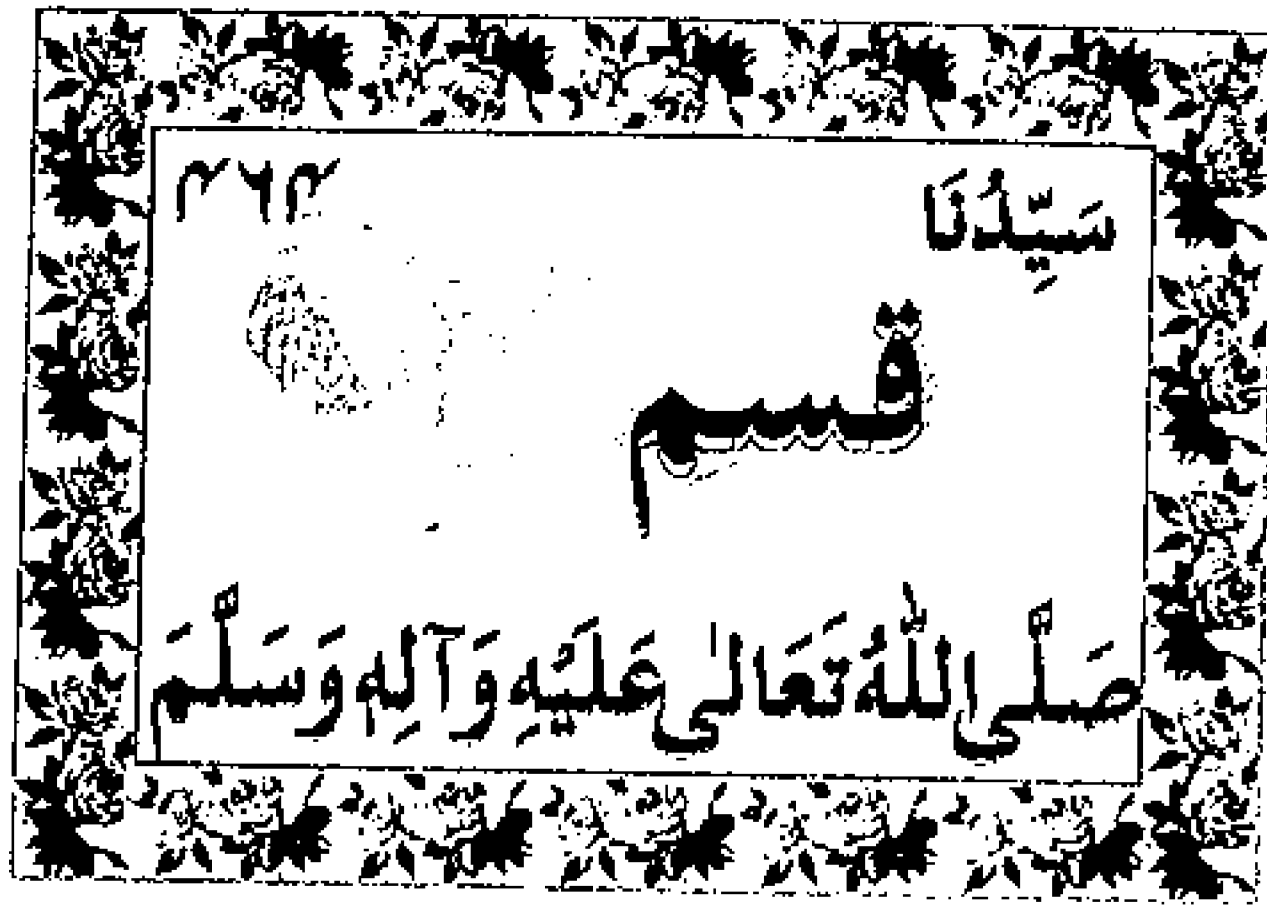 سَيِّدُنَا
قسم
صَلَّى اللّٰهُ تَعَالٰى عَلَيْهِ وَآلِهٖ وَسَلَّمَ